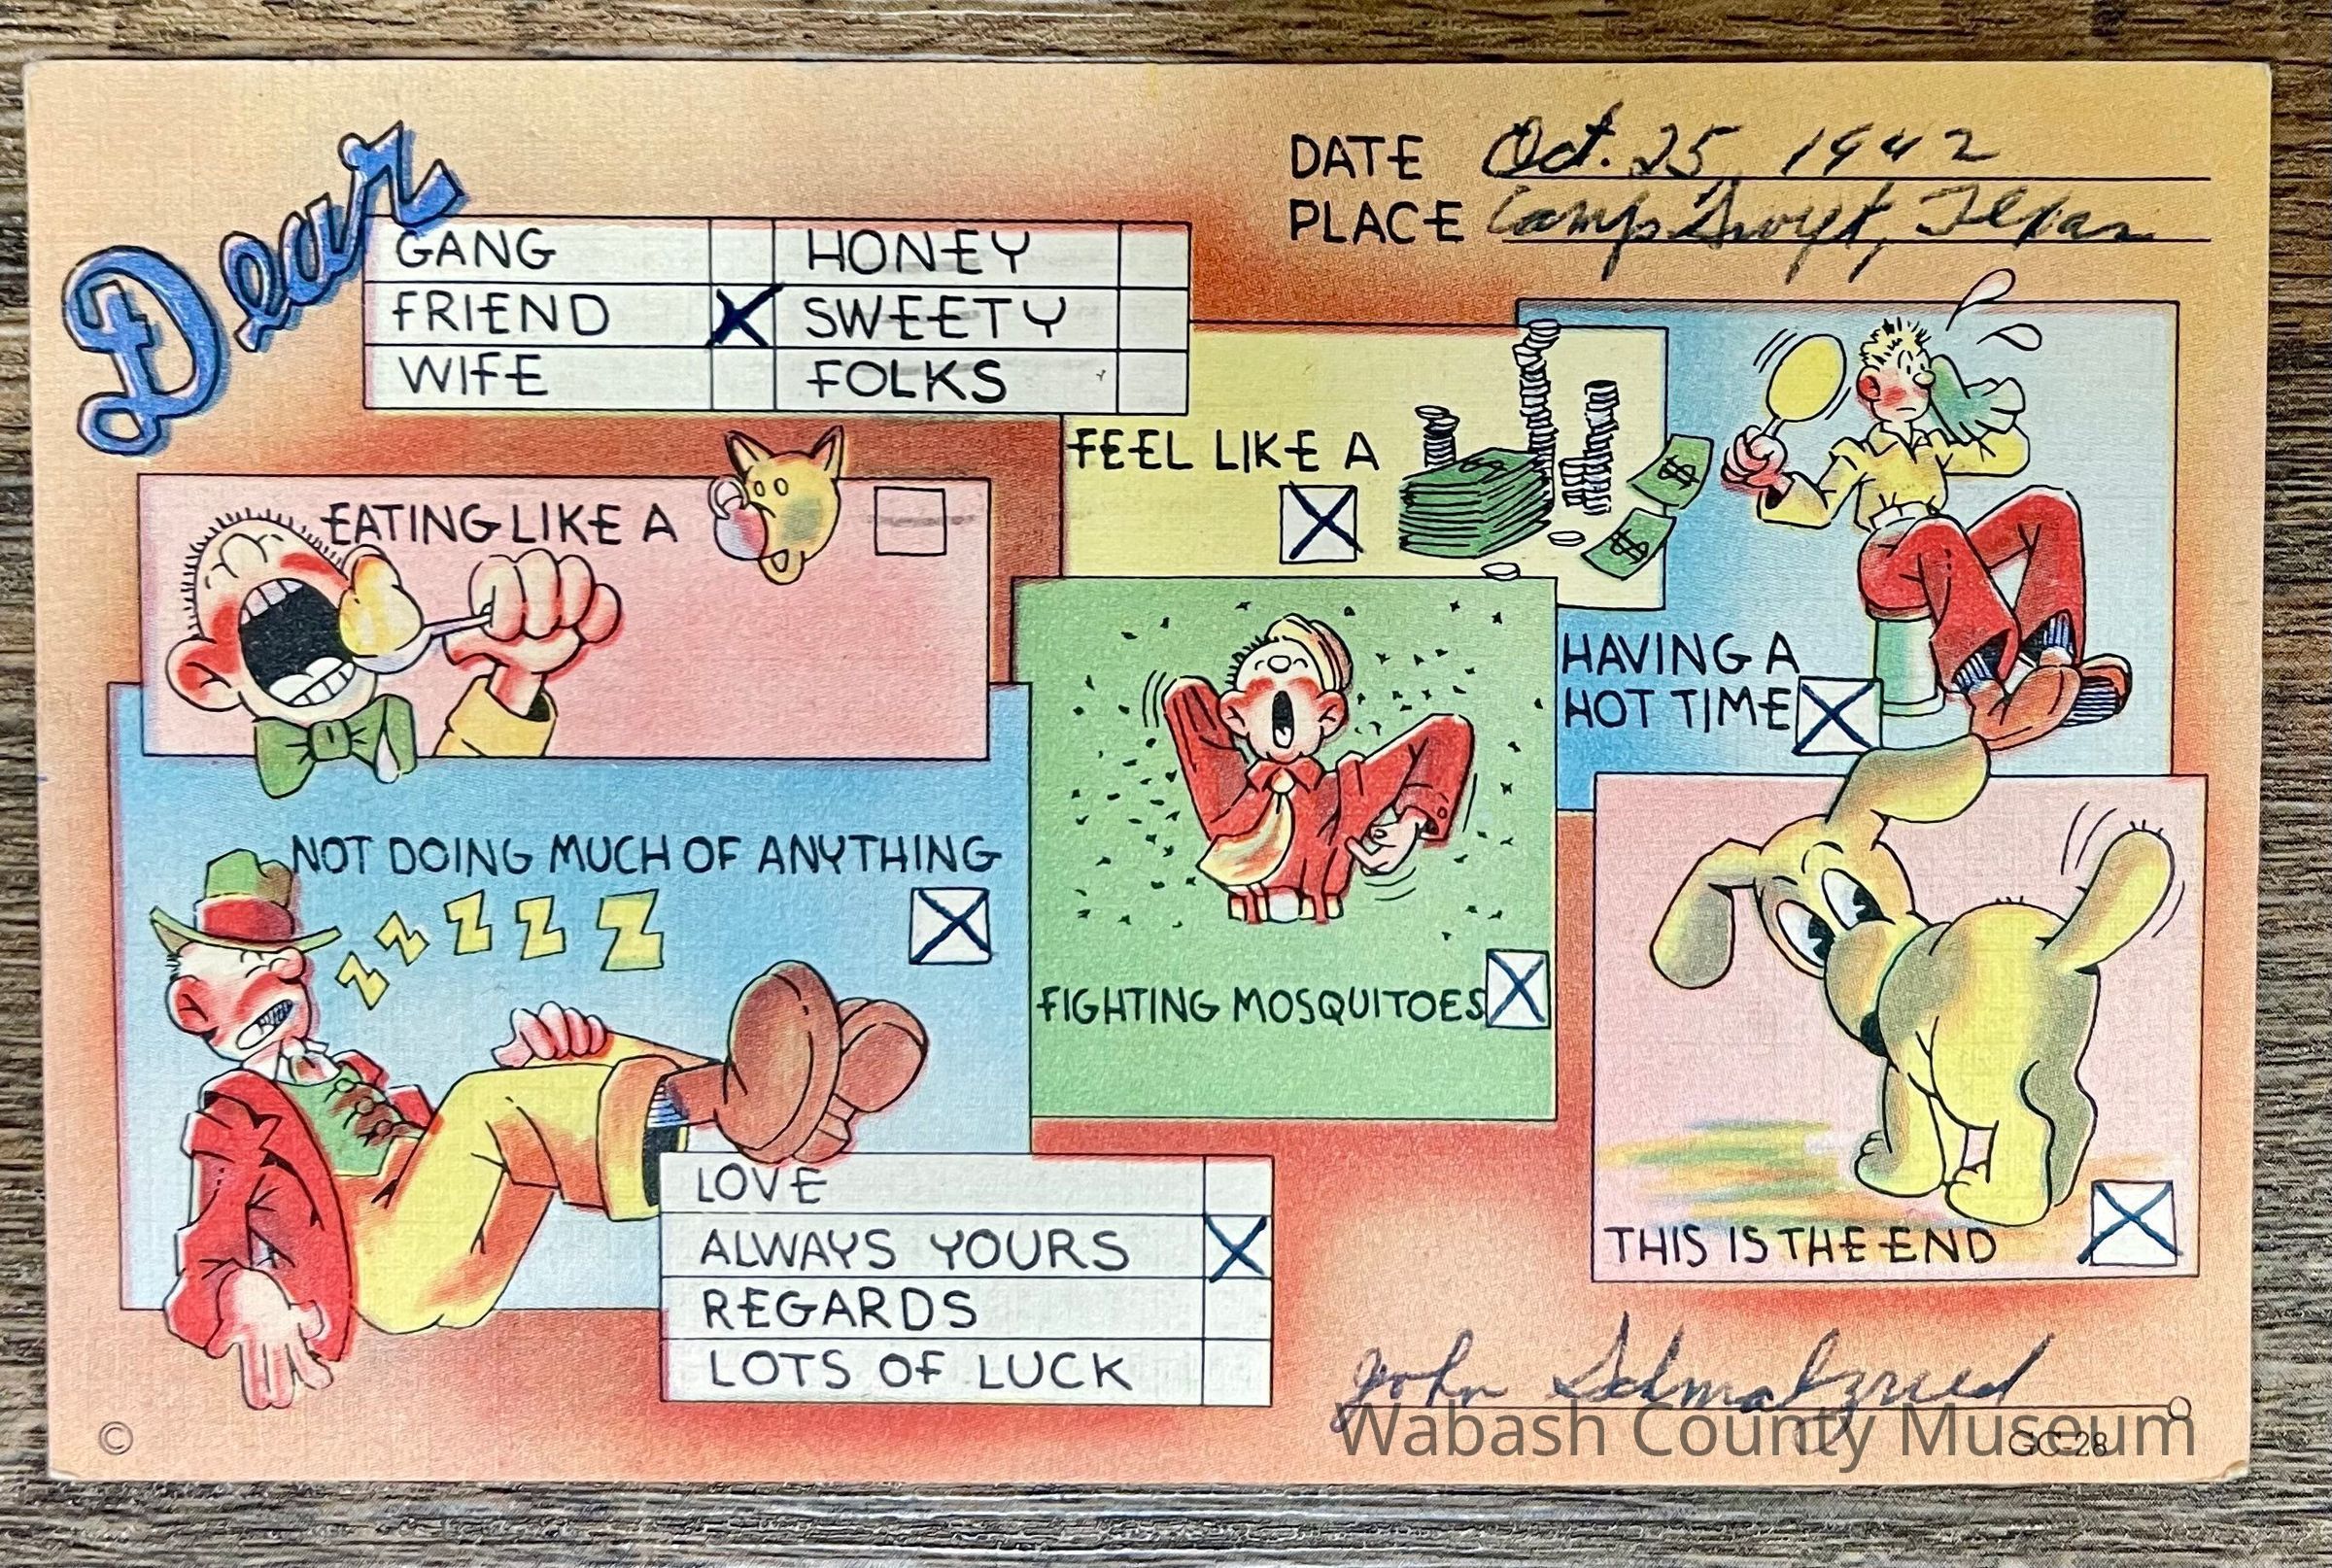 Dear
DATE Oct. 25, 1942
PLACE Camp Swift, Texas
GANG HONEY
FRIEND X SWEETY
WIFE FOLKS
EATING LIKE A
FEEL LIKE A
X
$ $
HAVING A
HOT TIME X
NOT DOING MUCH OF ANYTHING
Z Z Z Z Z X
FIGHTING MOSQUITOES X
LOVE
ALWAYS YOURS X
REGARDS
LOTS OF LUCK
THIS IS THE END X
John Schmalzried
Wabash County Museum
© GC-28